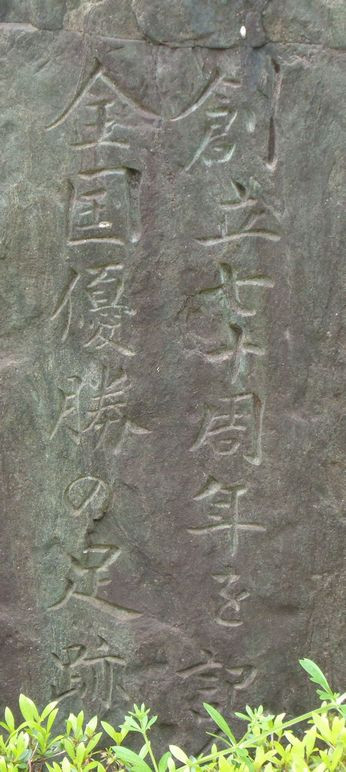 創立七十周年を記
全国優勝の足跡